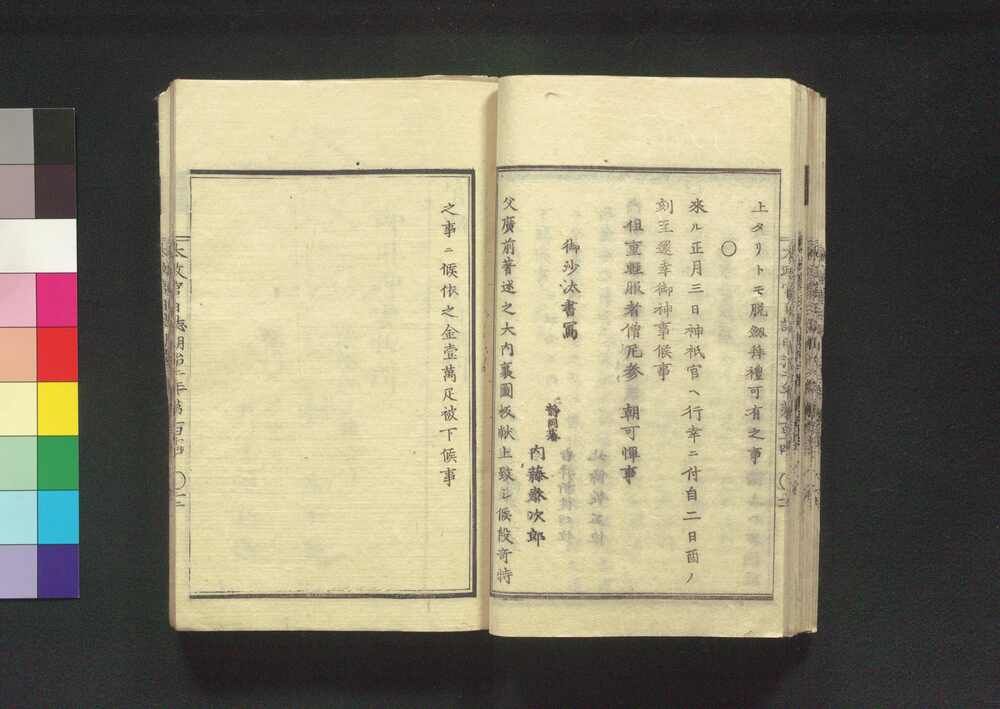 上タリトモ脱劔拜禮可有之事
〇
來ル正月三日神祇官ヘ行幸ニ付自二日酉ノ
刻至還幸御神事候事
但重輕服者僧尼參 朝可憚事
御沙汰書寫
靜岡藩
内藤 次郎
父廣前著述之大内裏圖 獻上致 候段奇特
之事ニ候依之金壹萬疋被下候事
太政官日誌明治二年第百 四